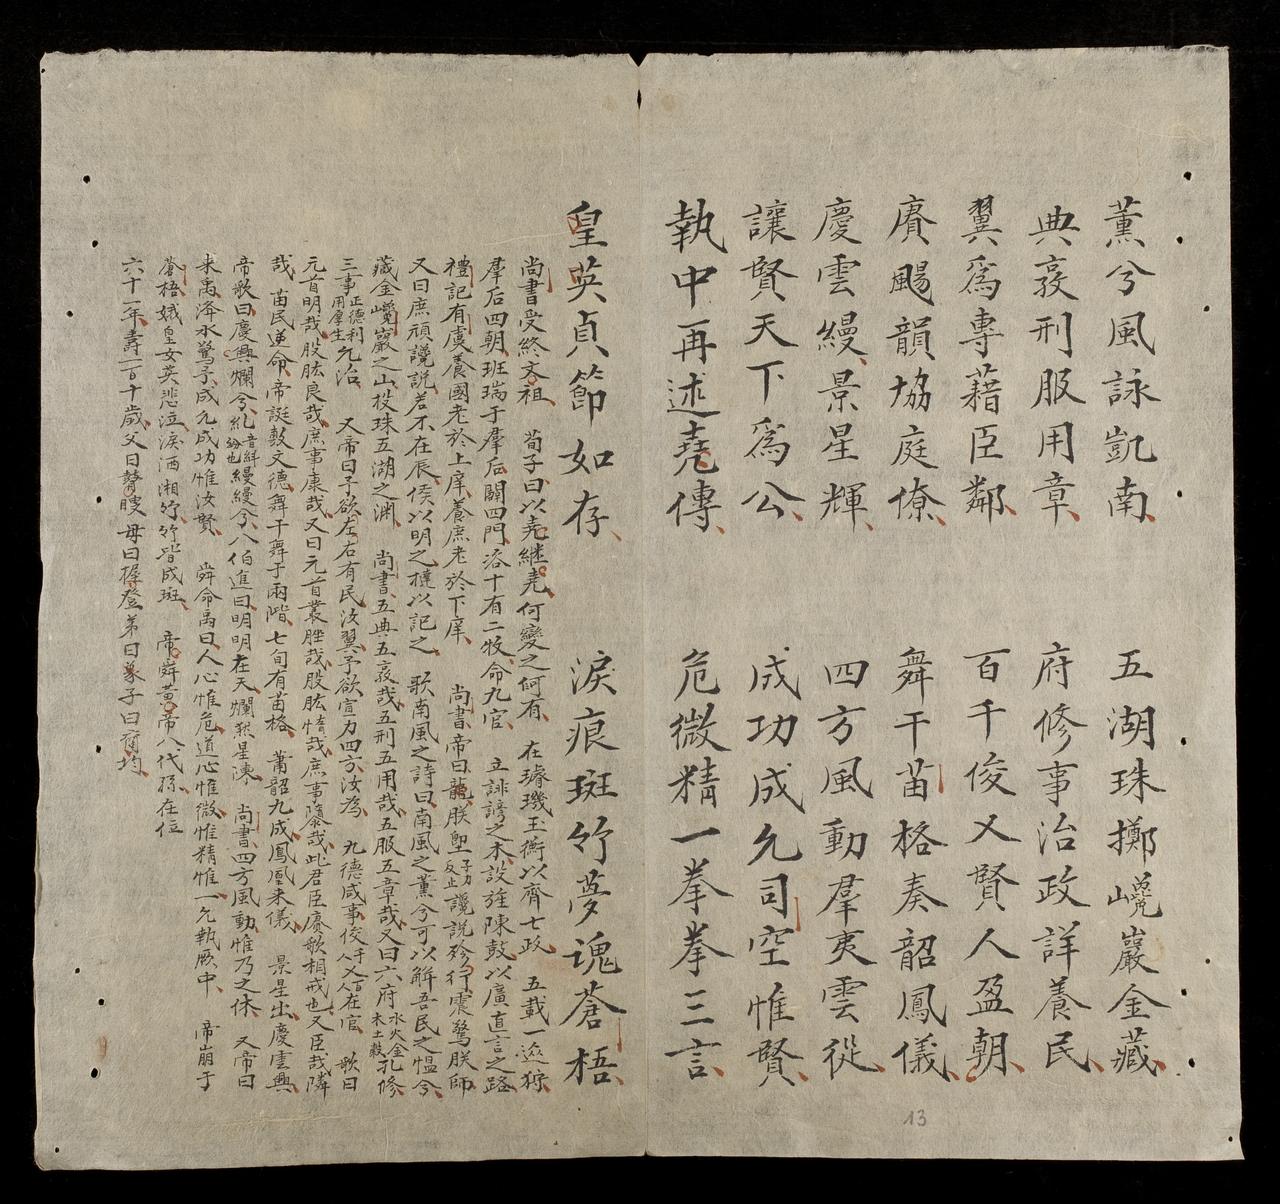 薰兮風詠凱南 五湖珠擲巖金藏
典哀刑服用章 府修事治政詳養民
翼爲專藉臣鄰 百千俊乂賢人盈朝
賡颺韻協庭僚 舞干苗格奏韶鳳儀
慶雲縵景星輝 四方風動羣夷雲從
讓賢天下爲公 成功成允司空惟賢
執中再述堯傳 危微精一拳拳三言
皇英貞節如存 淚痕斑竹夢魂蒼梧
尚書受終文祖 荀子曰以堯継堯何變之何有 在璿璣玉衡以齊七政 五載一巡狩
羣后四朝班瑞于羣后闢四門咨十有二牧命九官 立誹謗之木設旌陳鼓以廣直言之路
禮記有虞養國老於上庠養庶老於下庠 尚書帝曰龍朕堲讒說殄行震驚朕師
又曰庶頑讒說若不在辰侯以明之撻以記之 歌南風之詩曰南風之薰兮可以解吾民之慍兮
藏金巖之山投珠五湖之渊 尚書五典五哀哉五刑五用哉五服五章哉又曰六府水火金木土穀孔修
三事正德利用厚生允治 又帝曰予欲左右有民汝翼予欲宣力四方汝爲 九德咸事俊乂在官 歌曰
元首明哉股肱良哉庶事康哉又曰元首叢脞哉股肱惰哉庶事隳哉此君臣賡歌相戒也又臣哉隣
哉 苗民逆命帝誕敷文德舞干舞于兩階七旬有苗格 蕭韶九成鳳凰来儀 景星出慶雲興
帝歌曰慶興爛兮糺縵縵兮八伯進曰明明在天爛熙星陳 尚書四方風動惟乃之休 又帝曰
来禹洚水驚予成允成功惟汝賢 舜命禹曰人心惟危道心惟微惟精惟一允執厥中 帝崩于
蒼梧娥皇女英悲泣淚洒湘竹竹皆成斑 帝舜黄帝八代孫在位
六十一年壽一百十歲父曰瞽瞍母曰握登弟曰象子曰商均
13